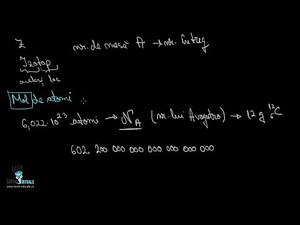 Z nr. de masă A → nr. întreg
Izotop
același loc
Mol de atomi
6,022·10²³ atomi → N_A (nr. lui Avogadro) → 12 g ¹²₆C
602 200 000 000 000 000 000 000